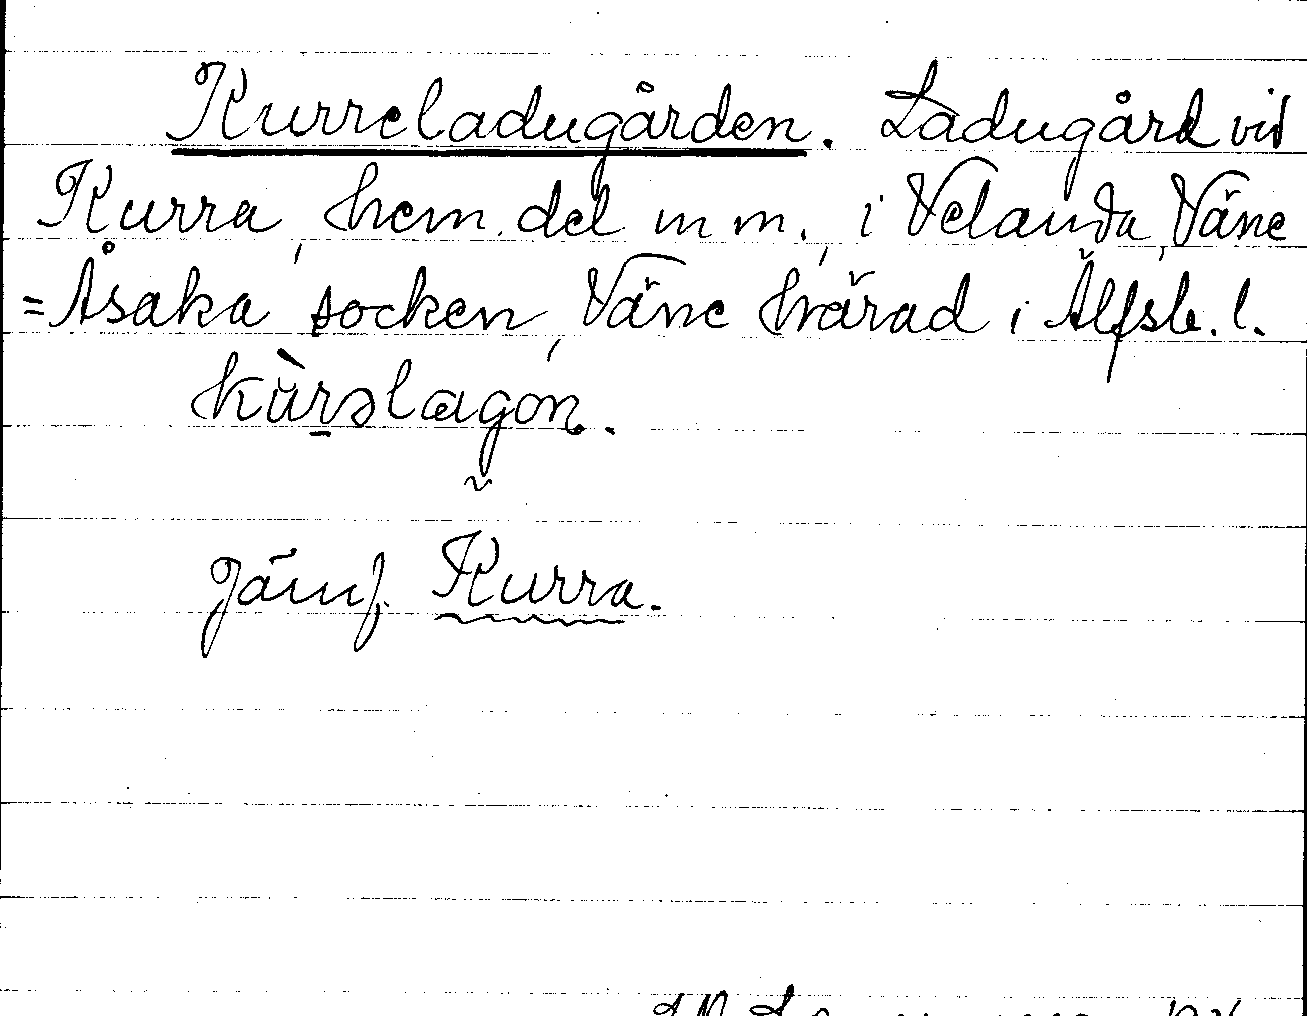 Kurreladugården. Ladugård vid
Kurra, hem.del m m., i Velanda, Väne
=Åsaka socken, Väne härad i Älfsb. l.
Jämf. Kurra.